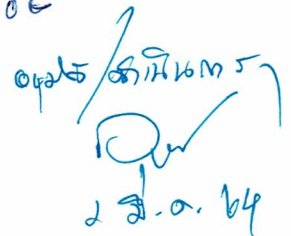 อนุมัติ/ดำเนินการ
๒ มี.ค. ๖๔